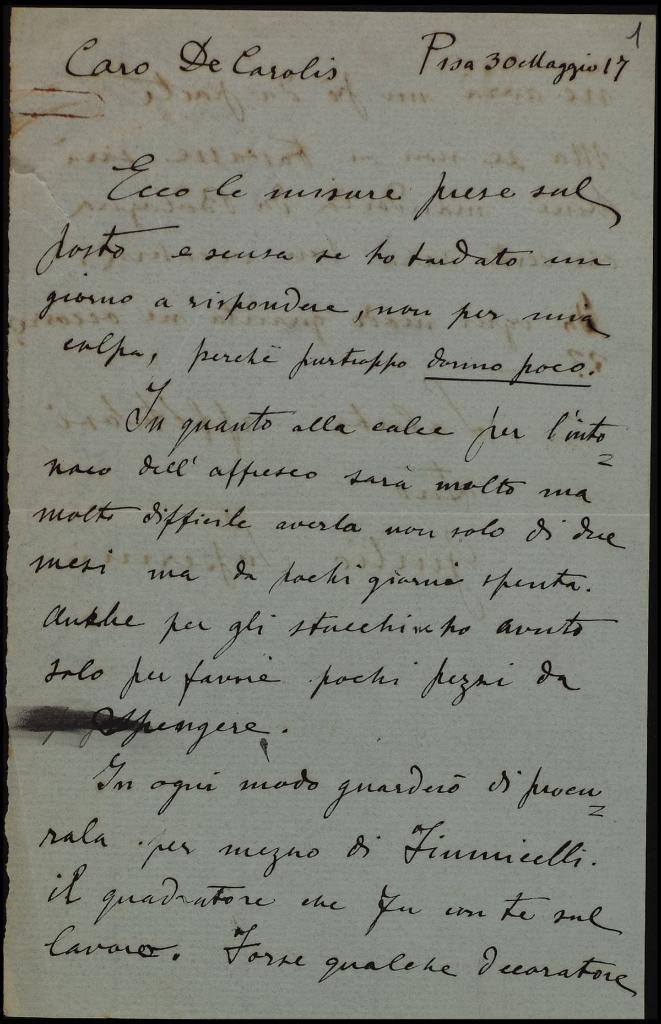 1
Caro De Carolis Pisa 30 Maggio 17
Ecco le misure prese sul
posto e scusa se ho tardato un
giorno a rispondere, non per mia
colpa, perchè purtroppo dormo poco.
In quanto alla calce per l'into=
naco dell'affresco sarà molto ma
molto difficile averla non solo di due
mesi ma da pochi giorni spenta.
Anche per gli stucchi ne ho avuto
solo per favore pochi pezzi da
spengere.
In ogni modo guarderò di procu=
rala per mezzo di Fiumicelli.
il quadratore che fu con te sul
lavoro. Forse qualche decoratore